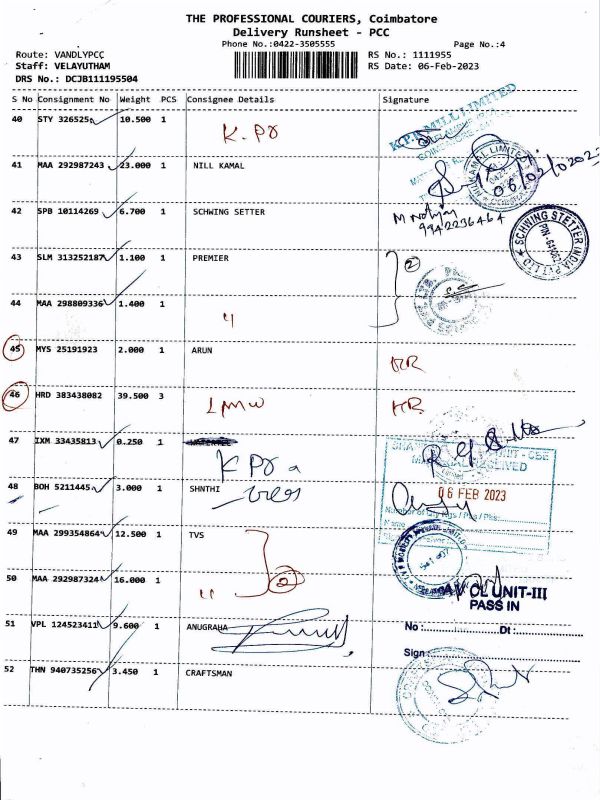 THE PROFESSIONAL COURIERS, Coimbatore
Delivery Runsheet - PCC
Phone No.:0422-3505555 Page No.:4
Route: VANDLYPCC RS No.: 1111955
Staff: VELAYUTHAM RS Date: 06-Feb-2023
DRS No.: DCJB111195504
S No Consignment No Weight PCS Consignee Details Signature
40 STY 326525 10.500 1 K.Pr
41 MAA 292987243 23.000 1 NILL KAMAL
06/02/2023
42 SPB 10114269 6.700 1 SCHWING SETTER
9942236464
SCHWING STETTER INDIA PVT LTD
43 SLM 313252187 1.100 1 PREMIER
2
44 MAA 298809336 1.400 1 "
45 MYS 25191923 2.000 1 ARUN
46 HRD 383438082 39.500 3 LMW
47 IXM 33435813 0.250 1
K Pr
UNIT - CBE
48 BOH 5211445 3.000 1 SHNTHI
06 FEB 2023
49 MAA 299354864 12.500 1 TVS
2
50 MAA 292987324 16.000 1 "
CL UNIT-III
PASS IN
51 VPL 124523411 9.600 1 ANUGRAHA
No : Dt :
Sign :
52 THN 940735256 3.450 1 CRAFTSMAN